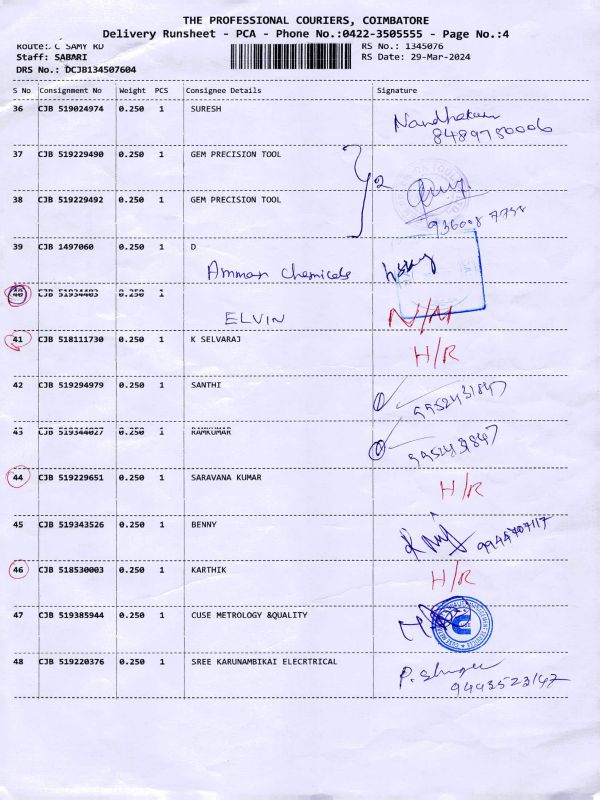 THE PROFESSIONAL COURIERS, COIMBATORE
Delivery Runsheet - PCA - Phone No.:0422-3505555 - Page No.:4
Route: C SAMY RD
RS No.: 1345076
Staff: SABARI
RS Date: 29-Mar-2024
DRS No.: DCJB134507604
S No Consignment No Weight PCS Consignee Details Signature
36 CJB 519024974 0.250 1 SURESH
8489780006
37 CJB 519229490 0.250 1 GEM PRECISION TOOL
38 CJB 519229492 0.250 1 GEM PRECISION TOOL
39 CJB 1497060 0.250 1 D
Amman Chemicals
40 CJB 51934483 0.250 1
ELVIN N/N
41 CJB 518111730 0.250 1 K SELVARAJ H/R
42 CJB 519294979 0.250 1 SANTHI 9952431847
43 CJB 519344027 0.250 1 RAMKUMAR 9952431847
44 CJB 519229651 0.250 1 SARAVANA KUMAR H/R
45 CJB 519343526 0.250 1 BENNY 9944707117
46 CJB 518530003 0.250 1 KARTHIK H/R
47 CJB 519385944 0.250 1 CUSE METROLOGY &QUALITY
48 CJB 519220376 0.250 1 SREE KARUNAMBIKAI ELECRTRICAL
9443523147